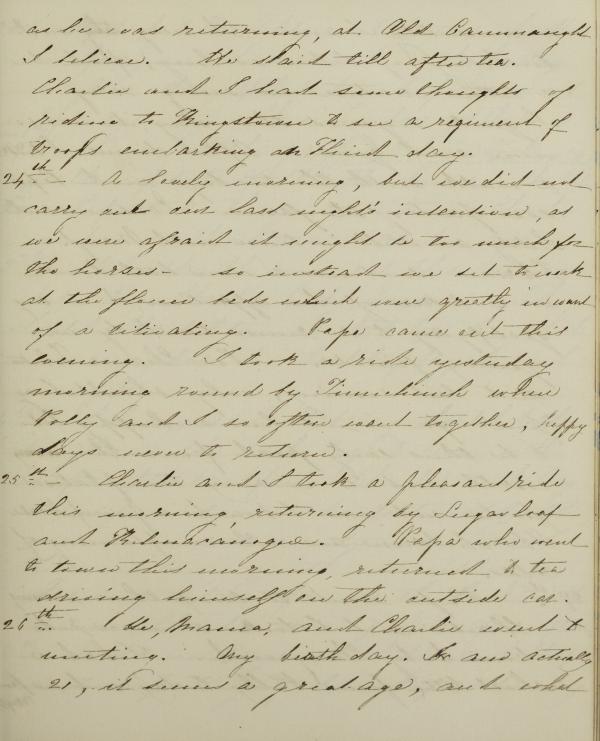 as he was returning, at Old Connaught
I believe. He staid till after tea.
Charlie and I had some thoughts of
riding to Kingstown to see a regiment of
troops embarking on Third day.
24th – A lovely morning, but we did not
carry out our last night's intention, as
we were afraid it might be too much for
the horses – so instead we set to work
at the flower beds which were greatly in want
of a titivating. Papa came out this
evening. I took a ride yesterday
morning round by Tinnehinch where
Polly and I so often went together, happy
days never to return.
25th – Charlie and I took a pleasant ride
this morning, returning by Sugarloaf
and Kilmacanogue. Papa who went
to town this morning, returned to tea
driving himself on the outside car.
26th. He, Mama, and Charlie went to
meeting. My birthday. I am actually
21, it seems a great age, and what